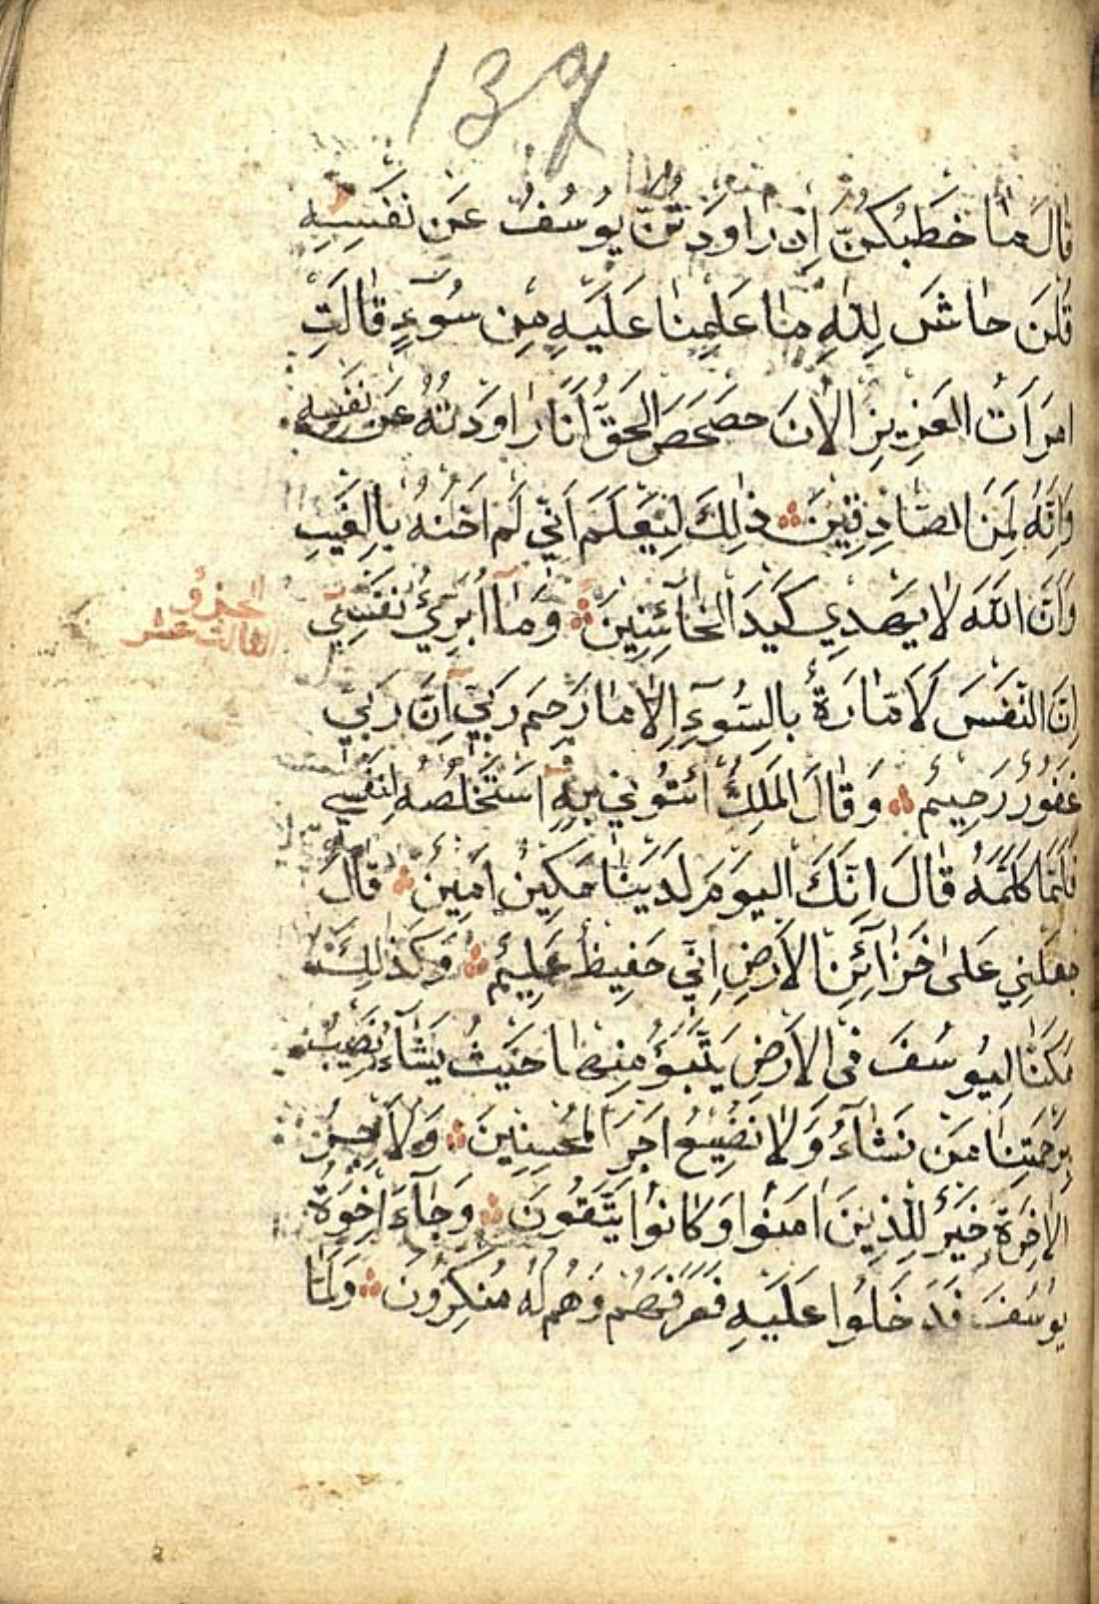 137
قَالَ مَا خَطْبُكُنَّ اِذْ رَاوَدْتُنَّ يُوسُفَ عَنْ نَفْسِهِ
قُلْنَ حَاشَ لِلّٰهِ مَا عَلِمْنَا عَلَيْهِ مِنْ سُوٓءٍ قَالَتِ
امْرَاَتُ الْعَزِيزِ الْاٰنَ حَصْحَصَ الْحَقُّ اَنَا رَاوَدْتُهُ عَنْ نَفْسِهِ
وَاِنَّهُ لَمِنَ الصَّادِقِينَ ذٰلِكَ لِيَعْلَمَ اَنِّي لَمْ اَخُنْهُ بِالْغَيْبِ
وَاَنَّ اللّٰهَ لَا يَهْدِي كَيْدَ الْخَآئِنِينَ وَمَآ اُبَرِّئُ نَفْسِي
الجزؤ
الثالث عشر
اِنَّ النَّفْسَ لَاَمَّارَةٌ بِالسُّوٓءِ اِلَّا مَا رَحِمَ رَبِّي اِنَّ رَبِّي
غَفُورٌ رَحِيمٌ وَقَالَ الْمَلِكُ ائْتُونِي بِهِ اَسْتَخْلِصْهُ لِنَفْسِي
فَلَمَّا كَلَّمَهُ قَالَ اِنَّكَ الْيَوْمَ لَدَيْنَا مَكِينٌ اَمِينٌ قَالَ
جعَلْنِي عَلٰى خَزَآئِنِ الْاَرْضِ اِنِّي حَفِيظٌ عَلِيمٌ وَكَذٰلِكَ
مَكَّنَّا لِيُوسُفَ فِي الْاَرْضِ يَتَبَوَّؤُ مِنْهَا حَيْثُ يَشَآءُ نُصِيبُ
بِرَحْمَتِنَا مَنْ نَشَآءُ وَلَا نُضِيعُ اَجْرَ الْمُحْسِنِينَ وَلَاَجْرُ
الْاٰخِرَةِ خَيْرٌ لِلَّذِينَ اٰمَنُوا وَكَانُوا يَتَّقُونَ وَجَآءَ اِخْوَةُ
يُوسُفَ فَدَخَلُوا عَلَيْهِ فَعَرَفَهُمْ وَهُمْ لَهُ مُنْكِرُونَ وَلَمَّا